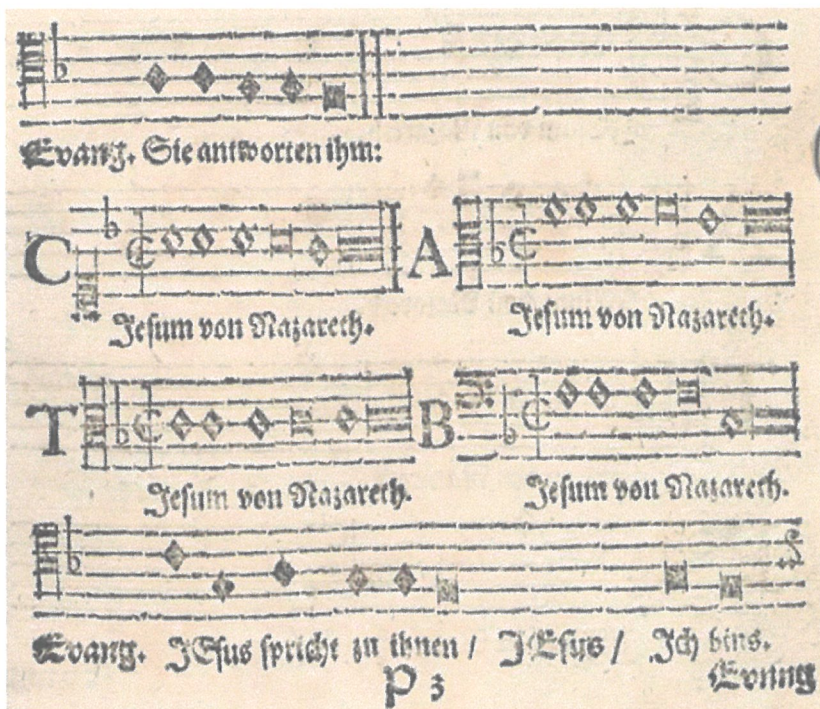 Evang. Sie antworten ihm:
C A
Jesum von Nazareth. Jesum von Nazareth.
T B
Jesum von Nazareth. Jesum von Nazareth.
Evang. JEsus spricht zu ihnen / JEsus / Ich bins.
P 3 Evang